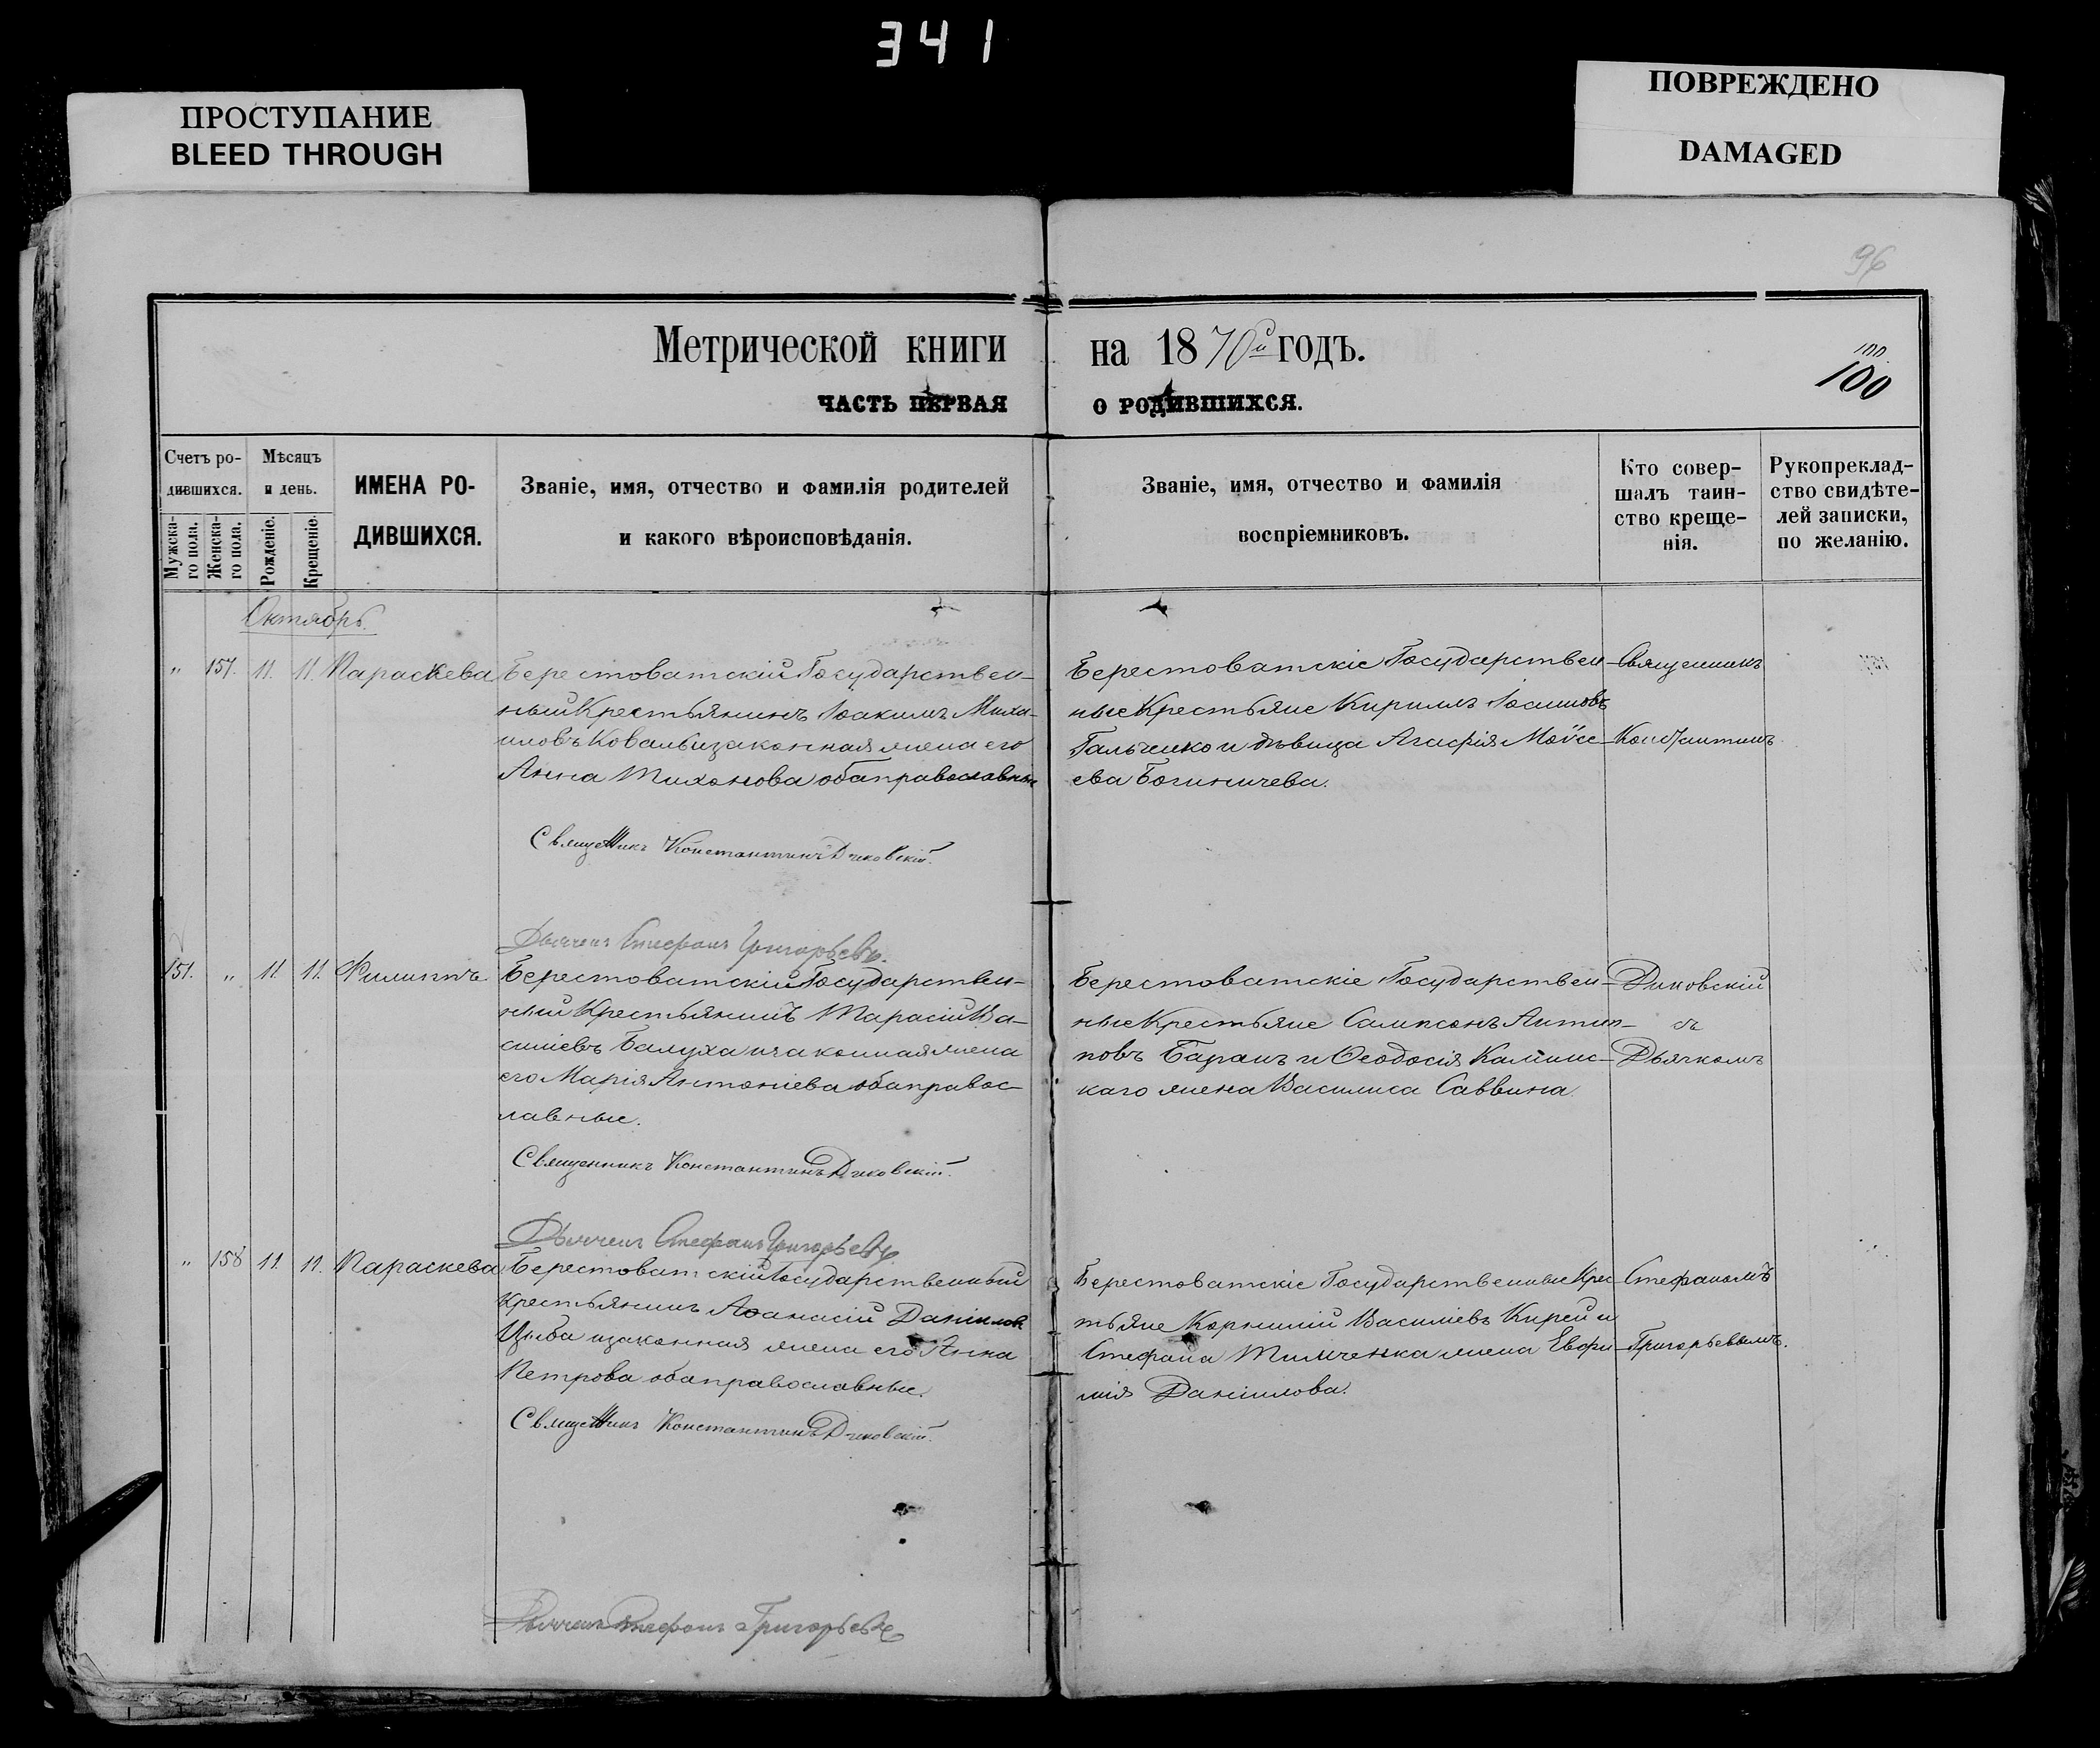 341
ПРОСТУПАНИЕ
BLEED THROUGH
ПОВРЕЖДЕНО
DAMAGED
96
Метрической книги на 1870й годъ.
100
100
ЧАСТЬ ПЕРВАЯ О РОДИВШИХСЯ.
Счетъ ро-
дившихся.
Мужска-
го пола.
Женска-
го пола.
Мѣсяцъ
и день.
Рожденіе.
Крещеніе.
ИМЕНА РО-
ДИВШИХСЯ.
Званіе, имя, отчество и фамилія родителей
и какого вѣроисповѣданія.
Званіе, имя, отчество и фамилія
воспріемниковъ.
Кто совер-
шалъ таин-
ство креще-
нія.
Рукоприклад-
ство свидѣте-
лей записки,
по желанію.
Октябрь.
" 157. 11. 11. Параскева
Берестоватскій Государствен-
ный Крестьянинъ Іоакимъ Миха-
иловъ Коваль и законная жена его
Анна Тихонова оба православные
Священникъ Константинъ Диковскій.
Дьячекъ Стефанъ Григорьевъ.
Берестоватскіе Государствен-
ные Крестьяне Кирилъ
Гальченко и дѣвица Агафія Моѵсе-
ева Богиничева.
Священникъ
Константинъ
151. " 11 11. Филиппъ
Берестоватскій Государствен-
ный Крестьянинъ Тарасій Ва-
силіевъ Балуха и законная жена
его Марія Антоніева оба правос-
лавные.
Священникъ Константинъ Диковскій.
Дьячекъ Стефанъ Григорьевъ
Берестоватскіе Государствен-
ные Крестьяне Сампсонъ Антип-
повъ Баранъ и Ѳеодосія Калинс-
каго жена Василиса Саввина.
Диковскій
съ
Дьячкомъ
" 158 11. 11. Параскева
Берестоватскій Государственный
Крестьянинъ Аѳанасій Даніиловъ
Цыба и законная жена его Анна
Петрова оба православные.
Священникъ Константинъ Диковскій.
Дьячекъ Стефанъ Григорьевъ
Берестоватскіе Государственные Крес-
тьяне Корнилій Василіевъ Кирей и
Стефана Тимченка жена Евфи-
мія Даніилова.
Стефаномъ
Григорьевымъ.